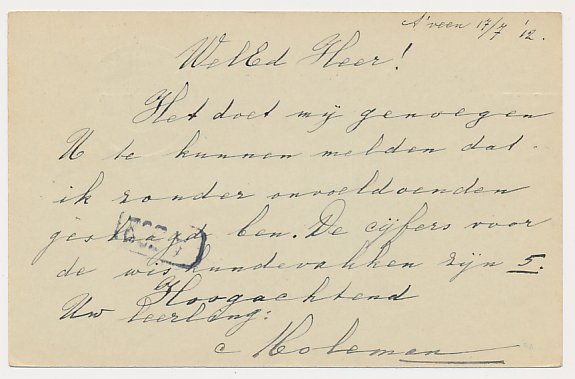 A'veen 17/7 '12.
WelEd Heer!
Het doet mij genoegen
U te kunnen melden dat
ik zonder onvoldoenden
geslaagd ben. De cijfers voor
de wiskundevakken zijn 5.
Hoogachtend
Uw leerling:
C Moleman